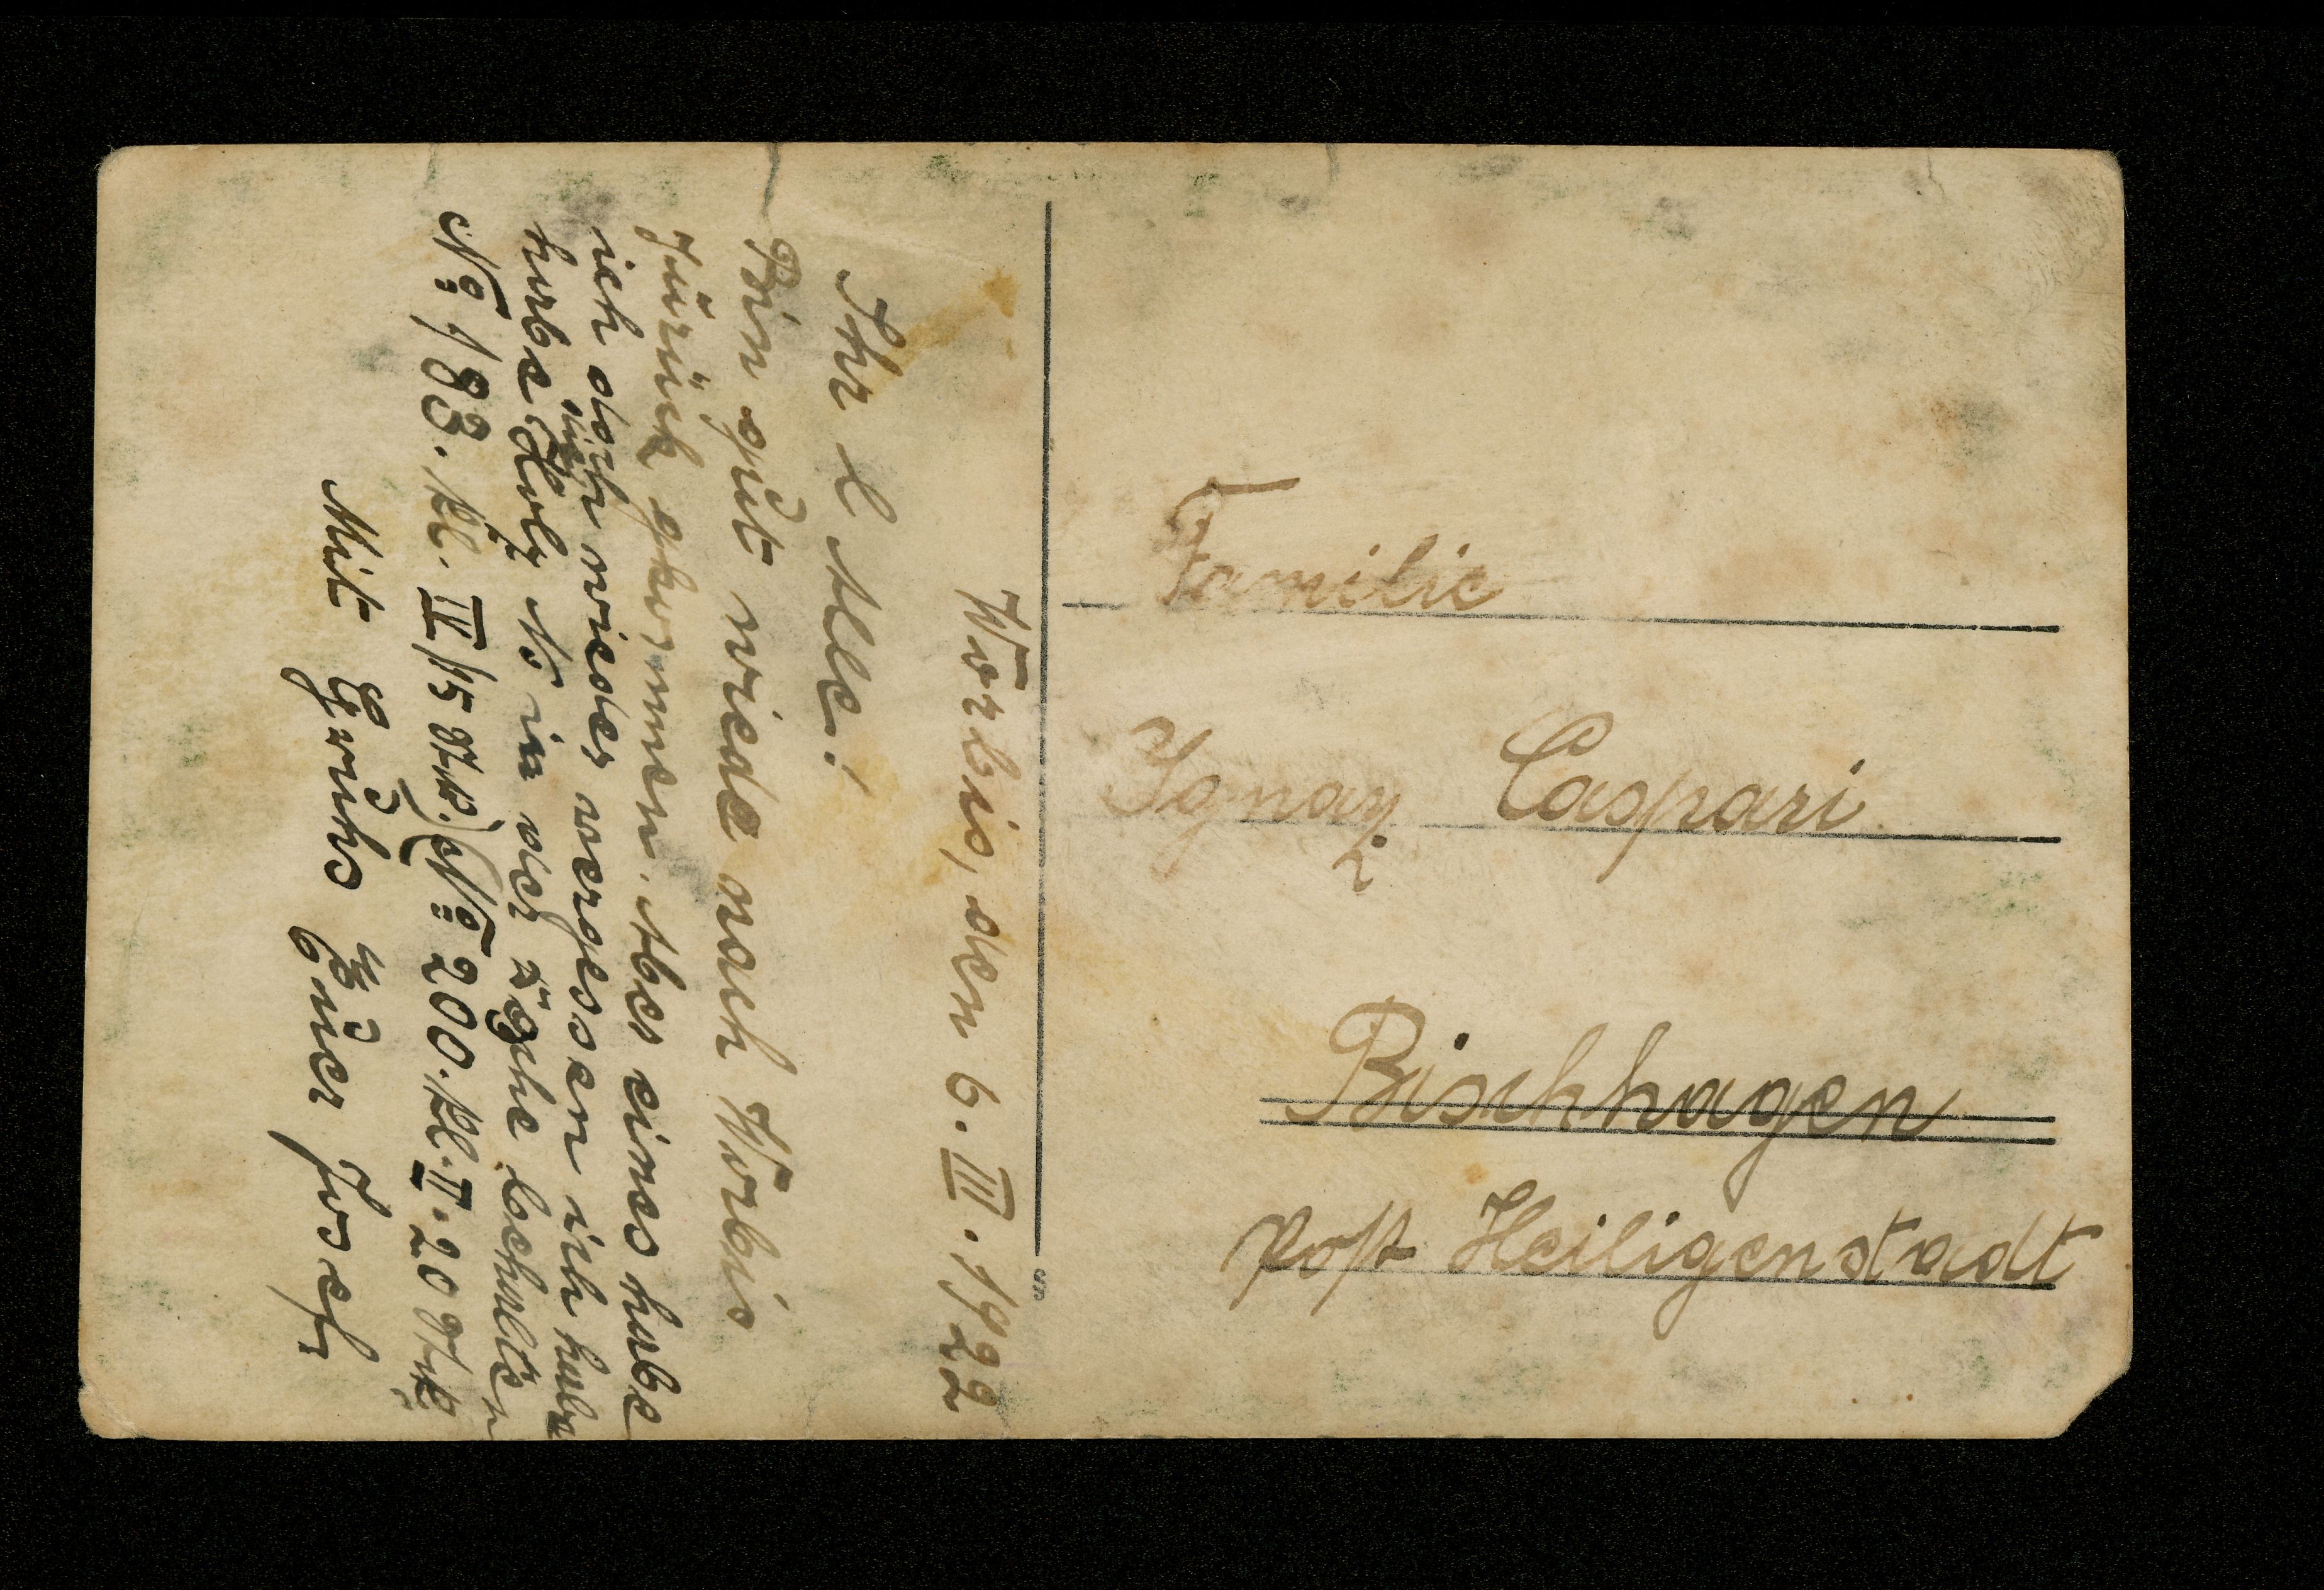 Worbis, den 6.III.1922
Ihr l Alle!
Bin gut wiede nach Worbis
zurück gekommen. Aber eines habe
ich doch wieder vergessen ich habe
habe Holz No in der behalten
No 183. kl. IV/15
No 200. kl. II. 20
Mit Gruhs Euer Josef.
Familie
Ignaz Caspari
Bischhagen
Post Heiligenstadt